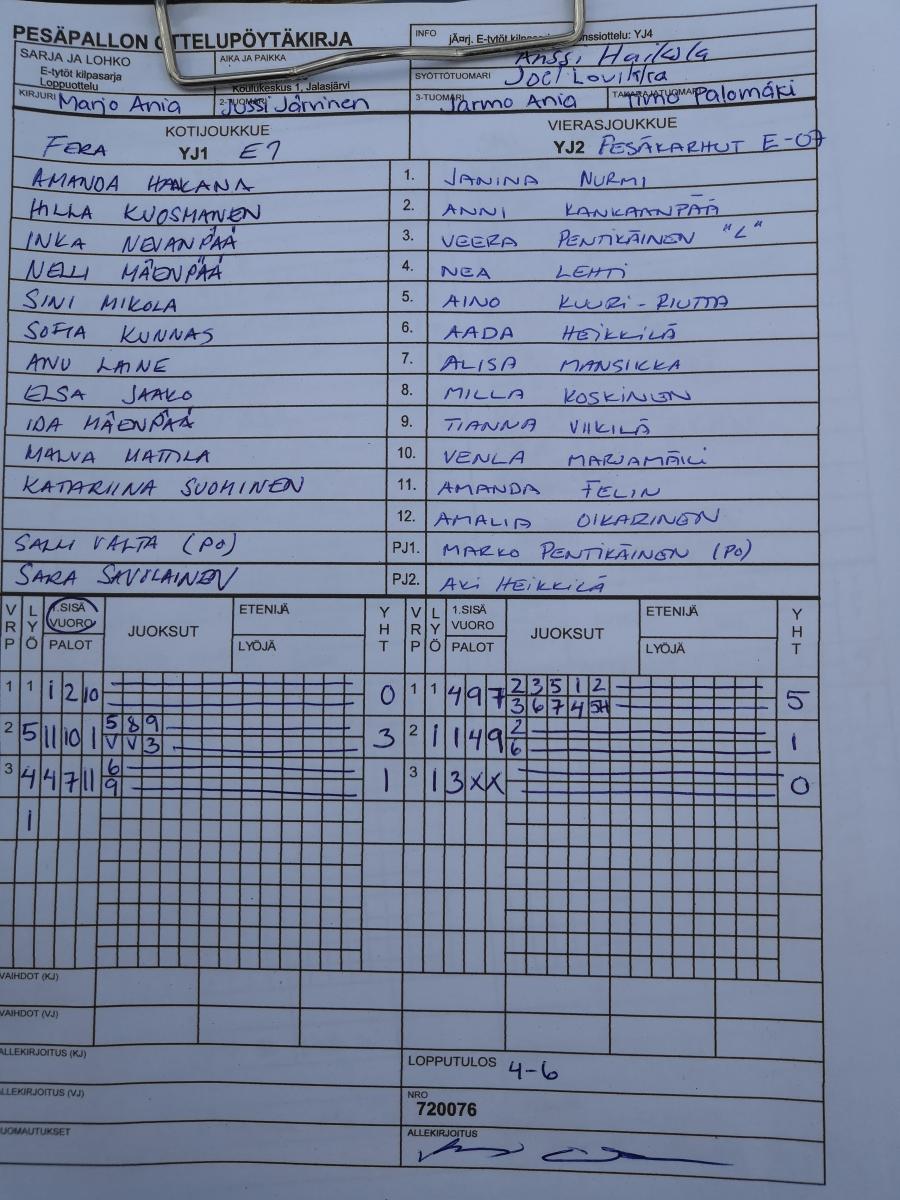 PESÄPALLON OTTELUPÖYTÄKIRJA
INFO
jÄ¤rj. E-tytöt kilpasarja nssiottelu: YJ4
SARJA JA LOHKO
E-tytöt kilpasarja
Loppuottelu
AIKA JA PAIKKA
Koulukeskus 1, Jalasjärvi
Anssi Haikola
SYÖTTÖTUOMARI
Joel Lovikka
KIRJURI Marjo Ania
2-TUOMARI Jussi Järvinen
3-TUOMARI Jarmo Ania
TAKARAJATUOMARI Timo Palomäki
KOTIJOUKKUE
FERA YJ1 E7
VIERASJOUKKUE
YJ2 PESÄKARHUT E-07
AMANDA HAKANA 1. JANINA NURMI
HILLA KUOSMANEN 2. ANNI KANKAANPÄÄ
INKA NEVANPÄÄ 3. VEERA PENTIKÄINEN "L"
NELLI MÄENPÄÄ 4. NEA LEHTI
SINI MIKOLA 5. AINO KUURI-RIUTTA
SOFIA KUNNAS 6. AADA HEIKKILÄ
ANU LAINE 7. ALISA MANSIKKA
ELSA JAAKO 8. MILLA KOSKINEN
IDA MÄENPÄÄ 9. TIANNA VIIKILÄ
MALVA MATTILA 10. VENLA MARJAMÄKI
KATARIINA SUOMINEN 11. AMANDA FELIN
12. AMALIA OIKARINEN
SALLI VALTA (PO) PJ1. MARKO PENTIKÄINEN (PO)
SARA SAVOLAINEN PJ2. AKI HEIKKILÄ
VRP LYÖ 1.SISÄ VUORO PALOT JUOKSUT ETENIJÄ LYÖJÄ YHT VRP LYÖ 1.SISÄ VUORO PALOT JUOKSUT ETENIJÄ LYÖJÄ YHT
1 1 1 2 10 0 1 1 4 9 7 2 3 5 1 2 5
3 6 7 4 5H
2 5 11 10 1 5 8 9 3 2 1 1 4 9 2 1
V V 3 6
3 4 4 7 11 6 1 3 1 3 X X 0
9
1
VAIHDOT (KJ)
VAIHDOT (VJ)
ALLEKIRJOITUS (KJ)
LOPPUTULOS 4-6
ALLEKIRJOITUS (VJ)
NRO
720076
HUOMAUTUKSET
ALLEKIRJOITUS